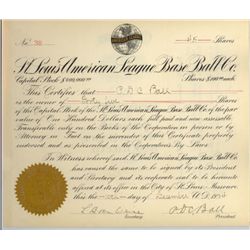 No. 38
45 Shares
St. Louis American League Base Ball Co.
Capital Stock $400,000.00 Shares $100 each
This Certifies that P. D. C. Ball
is the owner of Forty five Shares
of the Capital Stock of the St. Louis American League Base Ball Co. of the par
value of One Hundred Dollars each full paid and non assessable
Transferable only on the Books of the Corporation in person or by
Attorney in Fact on the surrender of this Certificate properly
endorsed, and as provided in the Corporation's By Laws.
In Witness whereof said St. Louis American League Base Ball Co. has
caused the same to be signed by its President
and Secretary and its corporate seal to be hereunto
affixed at its office in the City of St. Louis Missouri
this day of December A.D.
Secretary
P D C Ball
President